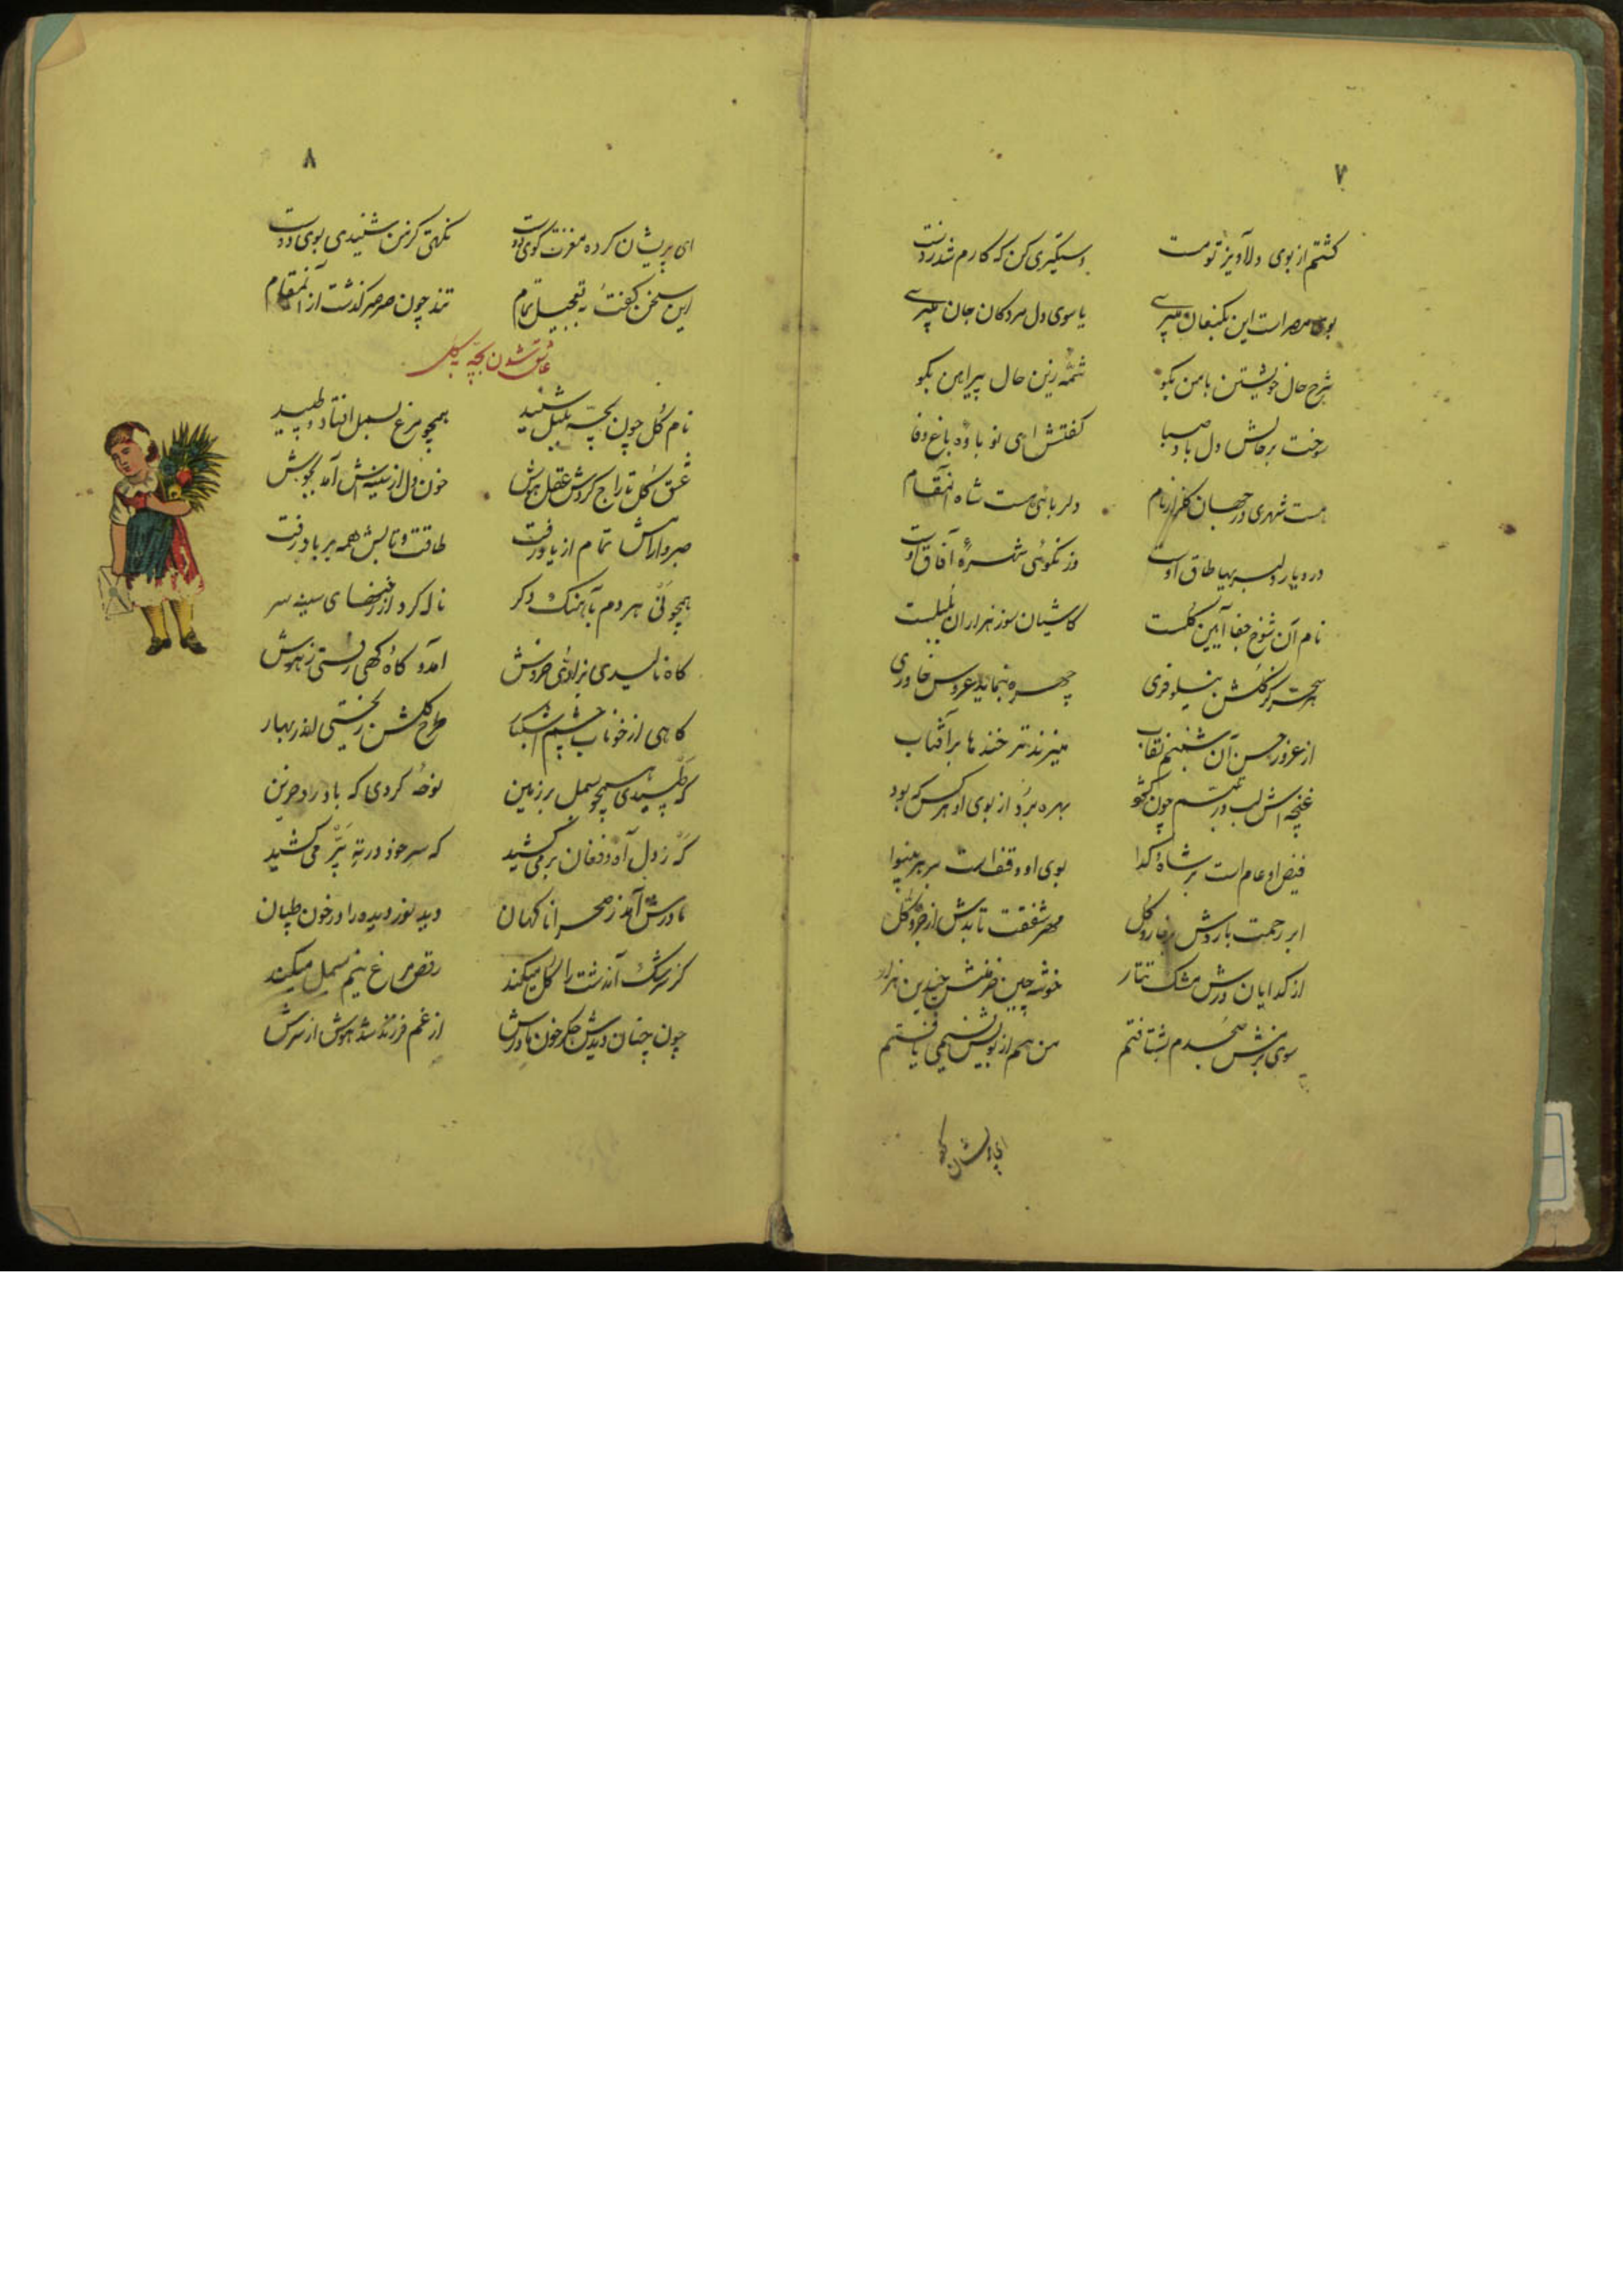 ۷
گشتم از بوی دلاویز تو مست دستگیری کن که کارم شد ز دست
بوی مصر است این بکنعان میبری یا سوی دل مردکان جان میبری
شرح حال خویشتن با من بکو شمّهٔ زین حال پیراهن بکو
سوخت بر حالش دل باد صبا کفتش ای نو باوه باغ وفا
هست شهری در جهان کلزار نام دلربائی هست شاه آنمقام
در دیار دلبریها طاق اوست وز نکوئی شهرهٔ آفاق اوست
نام آن شوخ جفا آیین گلست کاشیان سوز هزاران بلبلست
هر سحر کز گلشن نیلوفری چهره بنماید عروس خاوری
از غرور حسن آن شبنم نقاب میزند تر خندها بر آفتاب
غنچه اش لب در تبسم چون کشود بهره برد از بوی او هر کس که بود
فیض او عام است بر شاه و کدا بوی او وقف است بر هر بینوا
ابر رحمت باردش بر خار و گل مهر شفقت تابدش از جزو و کل
از کدایان درش مشک تتار خوشه چین خرمنش چندین هزار
سوی بزمش صبحدم بشتافتم من هم از بویش نسیمی یافتم
ای پریشان کرده
۸
ای پریشان کرده مغزت کوی دوست نکهتی کز من شنیدی بوی اوست
این سخن کفت و به تعجیل تمام تند چون صرصر کذشت از آنمقام
عاشق شدن بچّه به گل
نام گل چون بچّه بلبل شنید همچو مرغ بسمل افتاد و طپید
عشق گل تاراج کردش عقل و هوش خون دل از سینه اش آمد بجوش
صبر و آرامش تمام از یاد رفت طاقت و تابش همه بر باد رفت
همچو نی هر دم بآهنک دکر ناله کرد از زخمهای سینه سر
کاه نالیدی بزاری خروش آمدی کاه و کهی رفتی ز هوش
کاهی از خوناب چشم اشکبار طرح گلشن ریختی اندر بهار
که طپیدی همچو بسمل بر زمین نوحه کردی که باد راد حزین
که ز دل آه و فغان برمی کشید که سر خود در ته پر می کشید
مادرش آمد ز صحرا ناکهان دید نور دیده را در خون طپان
کز سرشک آن دشت را گل میکند رقص مرغ نیم بسمل میکند
چون چنان دیدش جکر خون مادرش از غم فرزند شد هوش از سرش